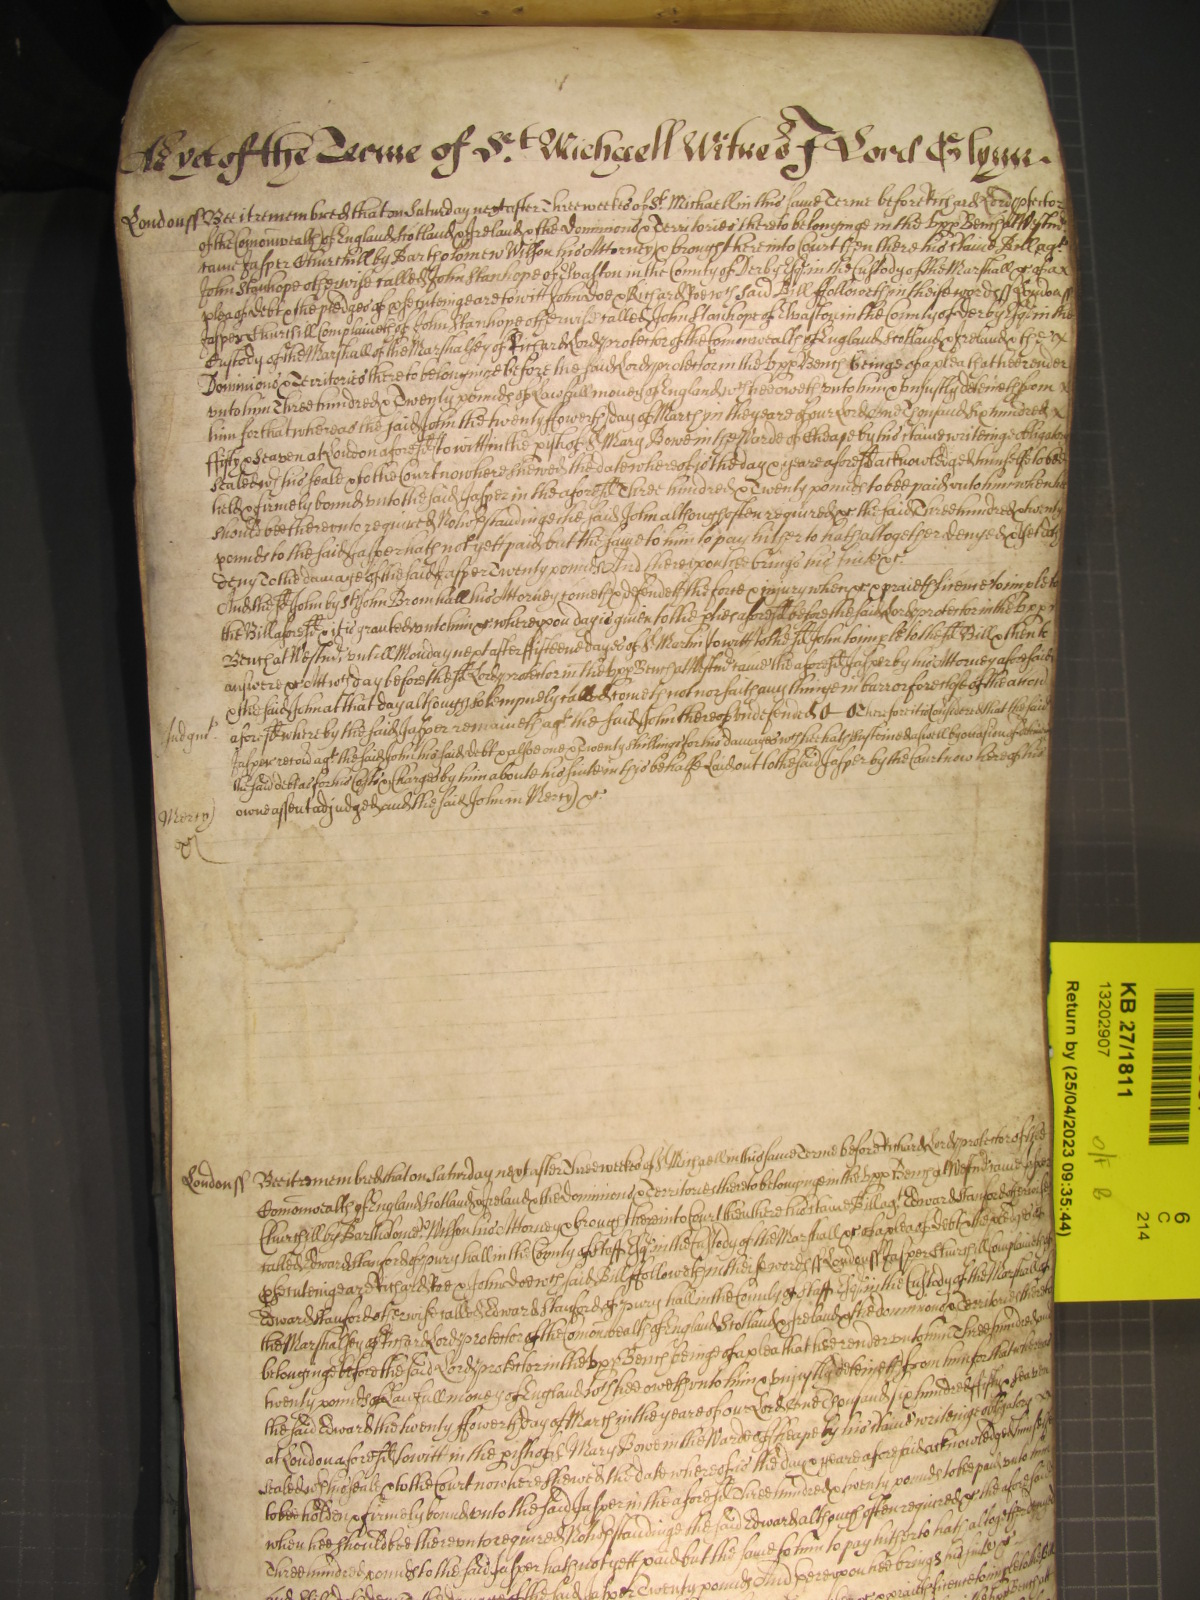 As yet of the Terme of St. Michaell Witnes J Lord Glynn.
Londonss Bee it remembred that on Saturday next after Three weekes of St. Michaell in this same Terme before Richard Lord Protector
of the Comonwealth of England Scotland & Ireland & the Dominions & Territories thereto belonginge in the Upp Bench att Westmr
came Jasper Churchill by Bartholomew Wilson his Attorney & brought here into Court then there his 
John Stanhope otherwise called John Stanhope of Elvaston in the County of Derby Esqr in the Custody of the Marshall &c of a
plea of debt & the pledges of prosecuteinge are to witt John Doe & Richard Roe wch said Bill followeth in theise words ss Londonss
Jasper Churchill Complaineth of John Stanhope otherwise called John Stanhope of Elvaston in the County of Derby Esqr in the
Custody of the Marshall of the Marshalsey of Richard Lord Protector of the Comonwealth of England Scotland & Ireland & the
Dominions & Territories thereto belonginge before the said Lord Protector in the Upp Bench beinge of a plea that hee render
unto him Three hundred & Twenty pounds of lawfull money of England wch hee oweth unto him & unjustly deteineth from
him for that whereas the said John the twenty ffowerth day of March in the yeare of our Lord One Thousand six hundred
ffifty & Seaven at London aforesd to witt in the pish of St Mary Bowe in the Warde of Cheape by his writeinge obligatory
sealed wth his seale & to the Court now here shewed the date whereof is the day & yeare aforesd acknowledged himselfe to bee
held & firmely bound unto the said Jasper in the aforesd Three hundred & Twenty pounds to bee paid unto him when hee
should bee thereunto required Nothwthstandinge the said John although often required &c the said Three hundred & twenty
pounds to the said Jasper hath not yett paid but the same to him to pay hitherto hath altogether denyed & yet doth
deny To the damage of the said Jasper Twenty pounds And thereupon hee brings his suite &c
And the sd John by St John Bromhall his Attorney cometh & defendeth the force & injury when &c & prayeth licence to imple to
the Bill aforesd & it is granted unto him &c whereupon day is given to the pties aforesd before the said Lord Protector in the Upp
Bench at Westmr untill Monday next after fifteene dayes of St Martin to witt to the sd John to imple to the sd Bill & then to
answere &c Att wch day before the sd Lord Protector in the Upp Bench at Westmr came the aforesd Jasper by his Attorney aforesaid
& the said John at that day although solempnely called cometh not nor saith any thinge in barr or foreclose of the accon
aforesd whereby the said Jasper remaineth agt the said John thereof undefended Therefore it is Considered that the said
Judgmt
Jasper recover agt the said John his said debt & alsoe one & Twenty shillings for his damages wch hee hath susteined aswell by occasion of deteininge
the said debt as for his Costs & Charges by him about his suite in this behalfe laid out to the said Jasper by the Court now here of his
owne assent adjudged and the said John in Mercy &c
Mercy
Londonss Bee it remembred that on Saturday next after Three weekes of St Michaell in this same Terme before Richard Lord Protector of the
Comonwealth of England Scotland & Ireland & the Dominions & Territories thereto belonginge in the Upp Bench at Westmr came Jasper
Churchill by Bartholomew Wilson his Attorney & brought here into Court then there his Bill agt Edward Stanford otherwise
called Edward Stanford of pury hall in the County of Staff Esqr in the Custody of the Marshall &c of a plea of debt & the pledges of
prosecuteinge are Richard Roe & John Doe wch said Bill followeth in theise words ss Londonss Jasper Churchill Complaineth of
Edward Stanford otherwise called Edward Stanford of pury hall in the County of Staff Esqr in the Custody of the Marshall of
the Marshalsey of Richard Lord Protector of the Comonwealth of England Scotland & Ireland & the dominions & Territories thereto
belonginge before the said Lord Protector in the Upp Bench beinge of a plea that hee render unto him Three hundred and
twenty pounds of Lawfull money of England wch hee oweth unto him & unjustly deteineth from him for that whereas
the said Edward the twenty ffowerth day of March in the yeare of our Lord One Thousand six hundred fifty & Seaven
at London aforesd to witt in the pish of St Mary Bowe in the Warde of Cheape by his writeinge obligatory
sealed wth his seale & to the Court now here shewed the date whereof is the day & yeare aforesaid acknowledged himselfe
to bee holden & firmely bound unto the said Jasper in the aforesd Three hundred & twenty pounds to bee paid unto him
when hee should bee thereunto required Nothwthstandinge the said Edward although often required &c the aforesaid
Three hundred pounds to the said Jasper hath not yett paid but the same to him to pay hitherto hath altogether denyed
the damage of the said Jasper Twenty pounds And thereupon hee brings his suite &c
6
C
214
KB 27/1811
13202907
O/F
B
Return by (25/04/2023 09:35:44)